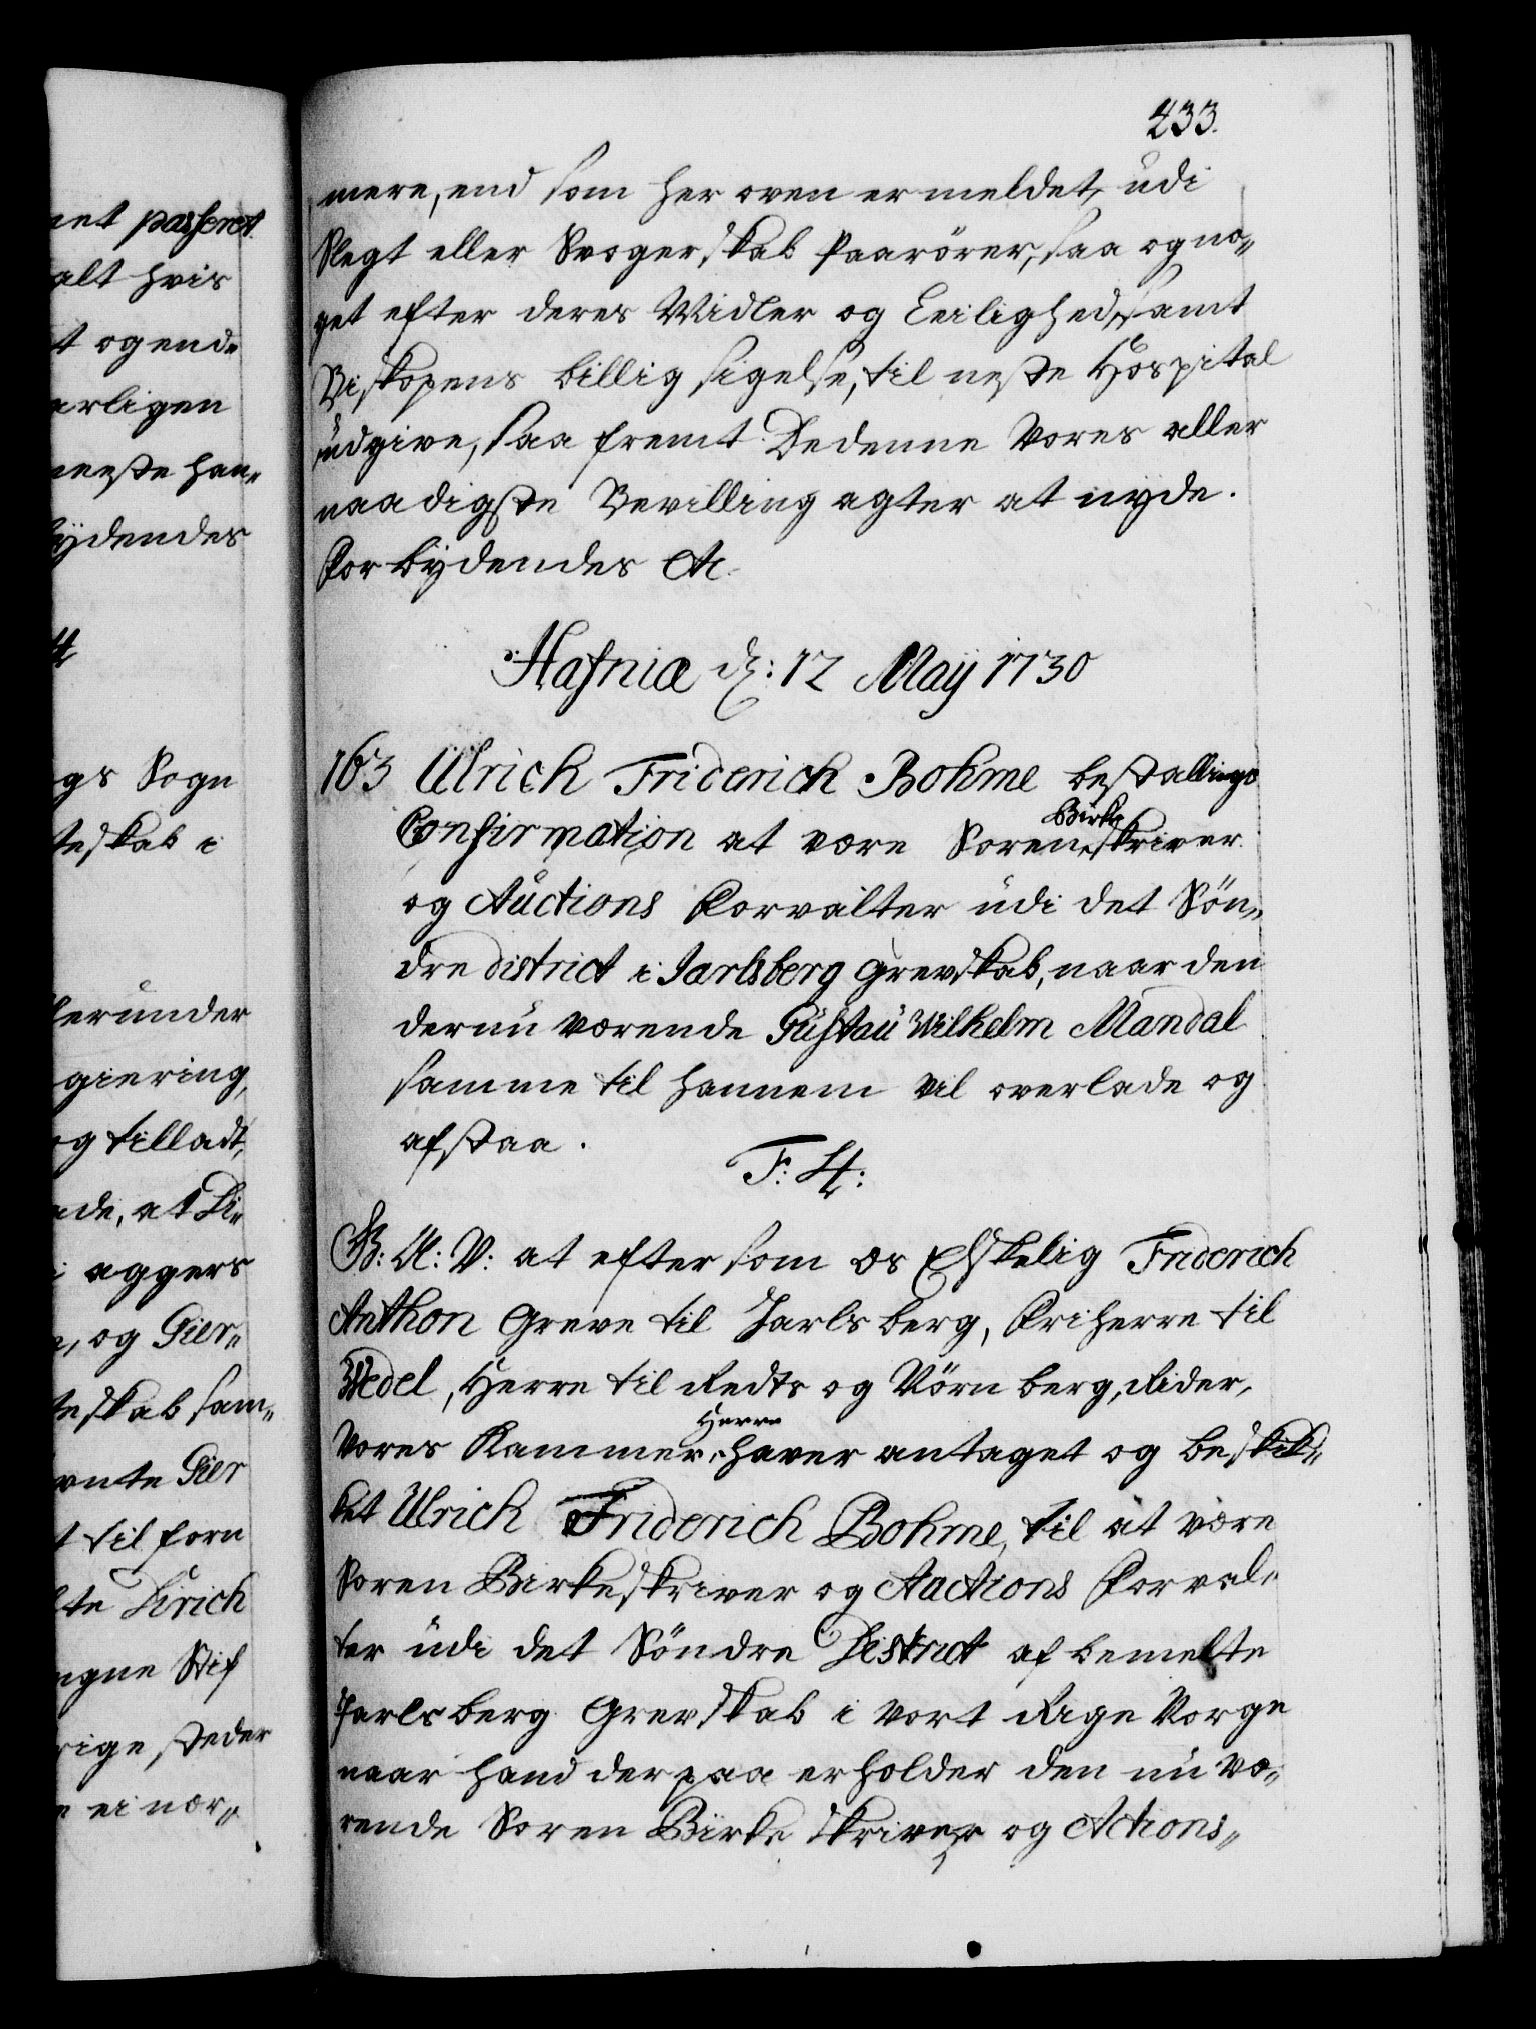 433.
mere, end som her oven er meldet, udi
Slegt eller Svogerskab Paarörer, saa og no„
get efter deres Midler og Leilighed, samt
Biskopens billig sigelse, til neste Hospital
udgive, saa fremt De denne Vores aller
naadigste Bevilling agter at nyde.
Forbydendes &c.
Hafniæ d: 12 Maÿ 1730
163 Ulrich Friderich Bohme bestallings
Confirmation at være Soren„ Birke skriver
og Auctions Forvalter udi det Sön„
dre district i Jarlsberg Grevskab, naar den
der nu værende Gustau Wilhelm Mandal
samme til hannem vil overlade og
afstaa.
F: 4:
G: A: V: at eftersom os Elskelig Friderich
Anthon Greve til Jarlsberg, Friherre til
Wedel, Herre til Redts og Vörnberg, Rider,
Vores Kammer„ Herre haver antaget og beskik„
ket Ulrich Friderich Bohme, til at være
Soren Birkeskriver og Auctions Forval„
ter udi det Söndre District af bemelte
Jarlsberg Grevskab i vort Rige Norge
naar hand der paa erholder den nu væ„
rende Soren Birke skriver og Actions„
net passeret.
alt hvis
t og end„
arligen
neste han„
ydendes
4
gs Sogn
teskab i
erunder
giering,
og tilladt,
ade, at Li„
i aggers
, og Gier„
teskab sam„
vnte Gier
t tilforn
te Lirich
gne Stif
rige steder
ei nær„